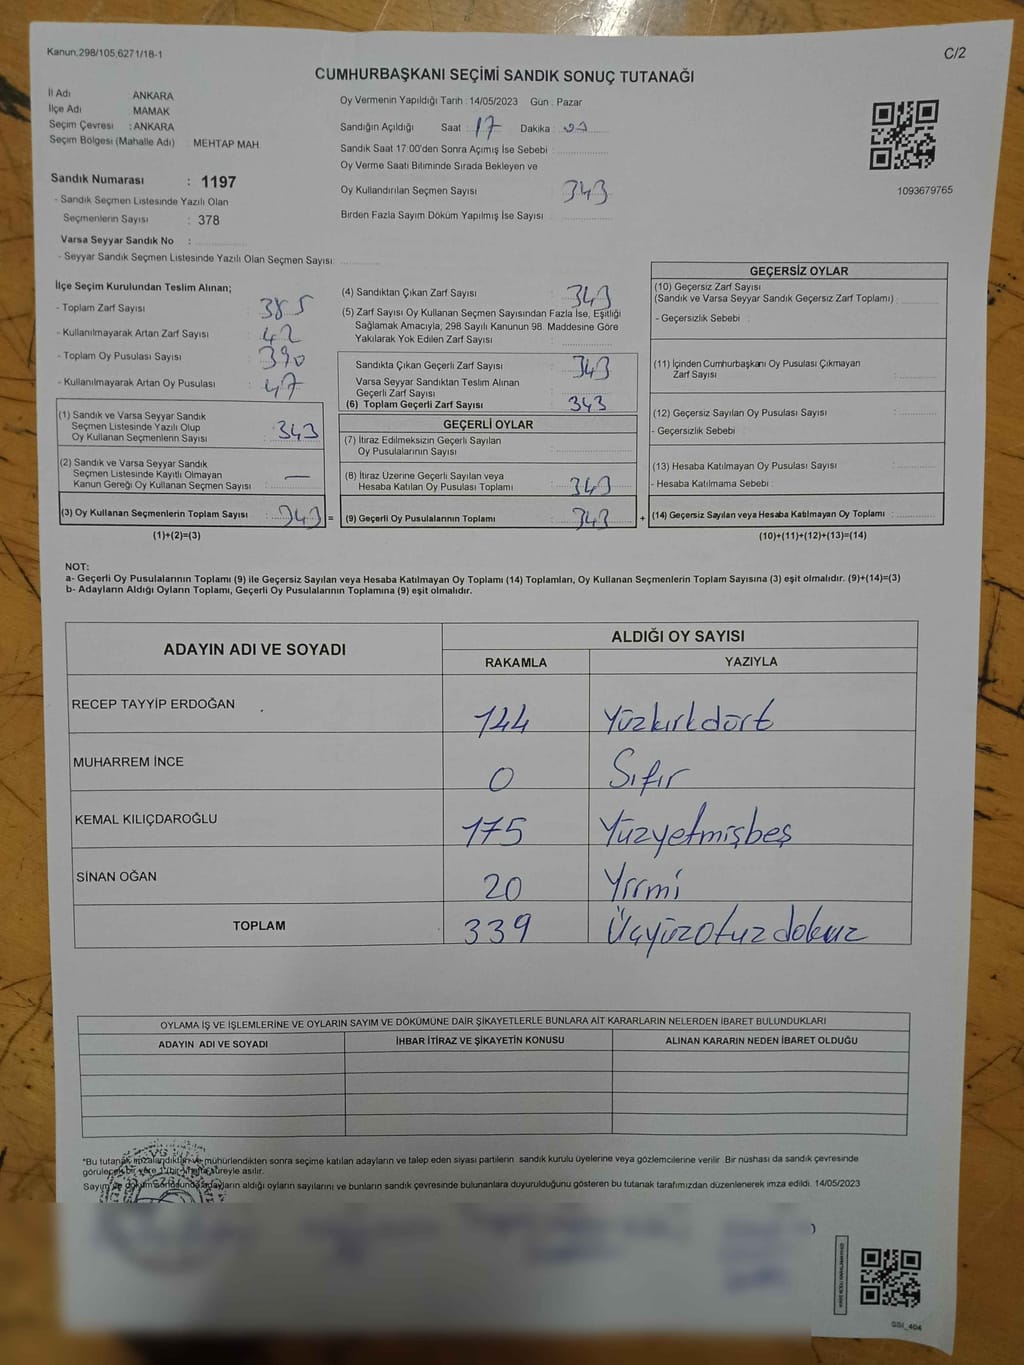 Kanun.298/105,6271/18-1
C/2
CUMHURBAŞKANI SEÇİMİ SANDIK SONUÇ TUTANAĞI
İl Adı ANKARA
İlçe Adı MAMAK
Seçim Çevresi : ANKARA
Seçim Bölgesi (Mahalle Adı) : MEHTAP MAH.
Sandık Numarası : 1197
- Sandık Seçmen Listesinde Yazılı Olan
Seçmenlerin Sayısı : 378
Varsa Seyyar Sandık No :
- Seyyar Sandık Seçmen Listesinde Yazılı Olan Seçmen Sayısı:
Oy Vermenin Yapıldığı Tarih : 14/05/2023 Gün : Pazar
Sandığın Açıldığı Saat : 17 Dakika :
Sandık Saat 17:00'den Sonra Açımış İse Sebebi :
Oy Verme Saati Bitiminde Sırada Bekleyen ve
Oy Kullandırılan Seçmen Sayısı 343
Birden Fazla Sayım Döküm Yapılmış İse Sayısı :
1093679765
İlçe Seçim Kurulundan Teslim Alınan;
- Toplam Zarf Sayısı : 385
- Kullanılmayarak Artan Zarf Sayısı : 42
- Toplam Oy Pusulası Sayısı : 390
- Kullanılmayarak Artan Oy Pusulası : 47
(1) Sandık ve Varsa Seyyar Sandık
Seçmen Listesinde Yazılı Olup
Oy Kullanan Seçmenlerin Sayısı : 343
(2) Sandık ve Varsa Seyyar Sandık
Seçmen Listesinde Kayıtlı Olmayan
Kanun Gereği Oy Kullanan Seçmen Sayısı : —
(3) Oy Kullanan Seçmenlerin Toplam Sayısı : 343 =
(1)+(2)=(3)
(4) Sandıktan Çıkan Zarf Sayısı : 343
(5) Zarf Sayısı Oy Kullanan Seçmen Sayısından Fazla İse, Eşitliği
Sağlamak Amacıyla; 298 Sayılı Kanunun 98. Maddesine Göre
Yakılarak Yok Edilen Zarf Sayısı :
Sandıkta Çıkan Geçerli Zarf Sayısı : 343
Varsa Seyyar Sandıktan Teslim Alınan
Geçerli Zarf Sayısı :
(6) Toplam Geçerli Zarf Sayısı : 343
GEÇERLİ OYLAR
(7) İtiraz Edilmeksizin Geçerli Sayılan
Oy Pusulalarının Sayısı :
(8) İtiraz Üzerine Geçerli Sayılan veya
Hesaba Katılan Oy Pusulası Toplamı : 343
(9) Geçerli Oy Pusulalarının Toplamı : 343 +
GEÇERSİZ OYLAR
(10) Geçersiz Zarf Sayısı
(Sandık ve Varsa Seyyar Sandık Geçersiz Zarf Toplamı) :
- Geçersizlik Sebebi :
(11) İçinden Cumhurbaşkanı Oy Pusulası Çıkmayan
Zarf Sayısı :
(12) Geçersiz Sayılan Oy Pusulası Sayısı :
- Geçersizlik Sebebi :
(13) Hesaba Katılmayan Oy Pusulası Sayısı :
- Hesaba Katılmama Sebebi :
(14) Geçersiz Sayılan veya Hesaba Katılmayan Oy Toplamı :
(10)+(11)+(12)+(13)=(14)
NOT:
a- Geçerli Oy Pusulalarının Toplamı (9) ile Geçersiz Sayılan veya Hesaba Katılmayan Oy Toplamı (14) Toplamları, Oy Kullanan Seçmenlerin Toplam Sayısına (3) eşit olmalıdır. (9)+(14)=(3)
b- Adayların Aldığı Oyların Toplamı, Geçerli Oy Pusulalarının Toplamına (9) eşit olmalıdır.
ADAYIN ADI VE SOYADI
ALDIĞI OY SAYISI
RAKAMLA YAZIYLA
RECEP TAYYİP ERDOĞAN 144 Yüzkırkdört
MUHARREM İNCE 0 Sıfır
KEMAL KILIÇDAROĞLU 175 Yüzyetmişbeş
SİNAN OĞAN 20 Yirmi
TOPLAM 339 Üçyüzotuzdokuz
OYLAMA İŞ VE İŞLEMLERİNE VE OYLARIN SAYIM VE DÖKÜMÜNE DAİR ŞİKAYETLERLE BUNLARA AİT KARARLARIN NELERDEN İBARET BULUNDUKLARI
ADAYIN ADI VE SOYADI İHBAR İTİRAZ VE ŞİKAYETİN KONUSU ALINAN KARARIN NEDEN İBARET OLDUĞU
*Bu tutanak imzalandıktan ve mühürlendikten sonra seçime katılan adayların ve talep eden siyasi partilerin sandık kurulu üyelerine veya gözlemcilerine verilir. Bir nüshası da sandık çevresinde
görülecek bir yere 1 (bir) hafta süreyle asılır.
Sayım ve döküm sonucunda adayların aldığı oyların sayılarını ve bunların sandık çevresinde bulunanlara duyurulduğunu gösteren bu tutanak tarafımızdan düzenlenerek imza edildi. 14/05/2023
GSI_404